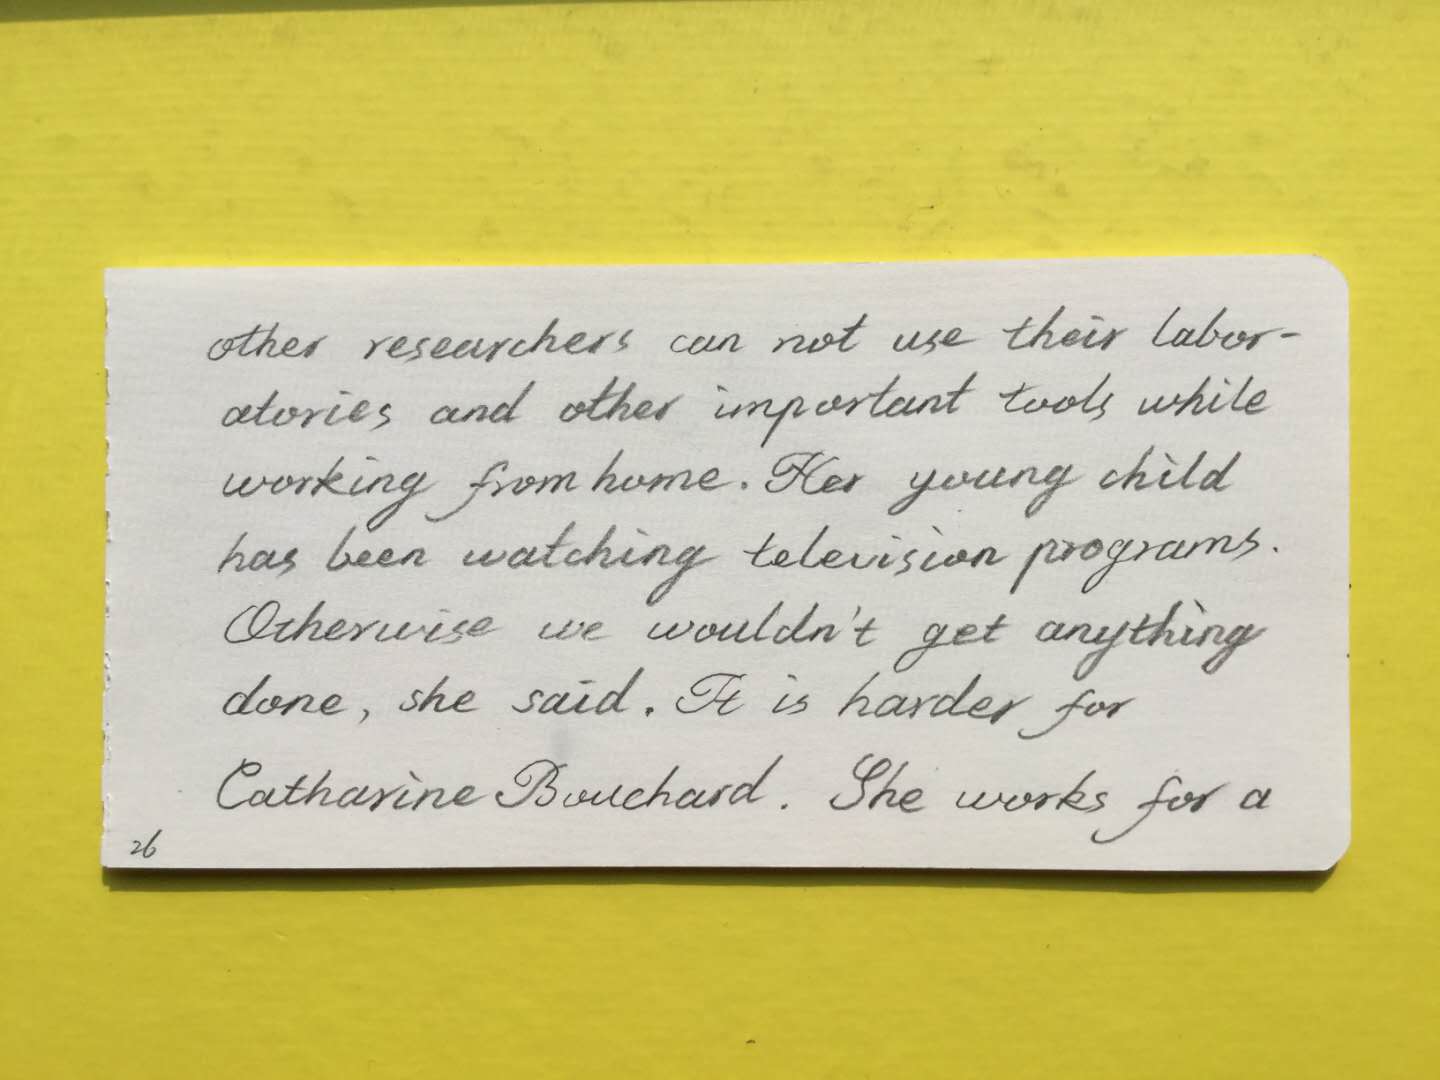 other researchers can not use their labor-
atories and other important tools while
working from home. Her young child
has been watching television programs.
Otherwise we wouldn't get anything
done, she said. It is harder for
Catharine Bouchard. She works for a
26